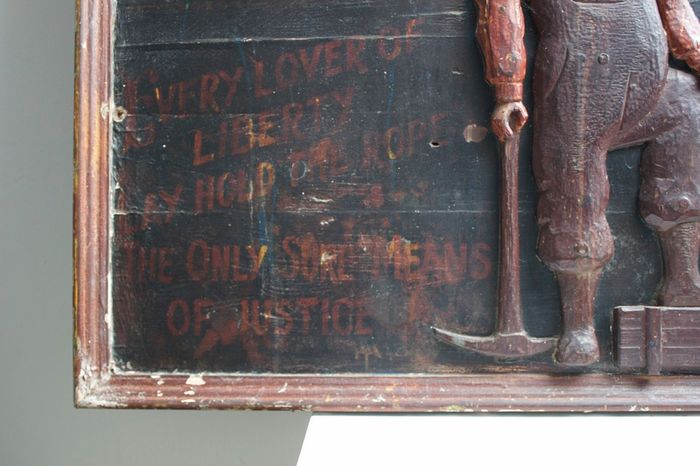 EVERY LOVER OF
LIBERTY
LAY HOLD THE ROPE
THE ONLY SURE MEANS
OF JUSTICE